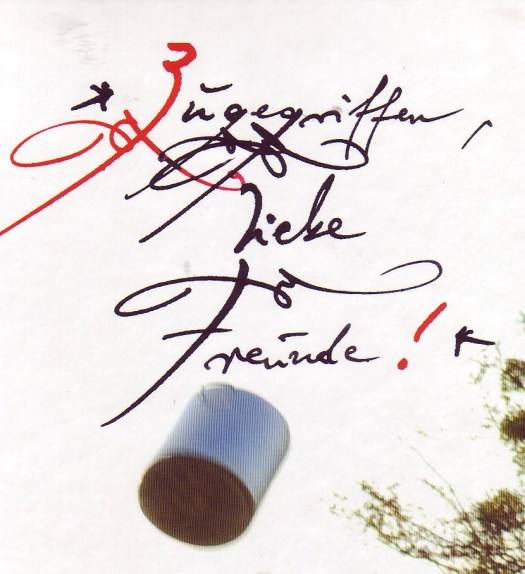 Zugegriffen,
liebe
Freunde!